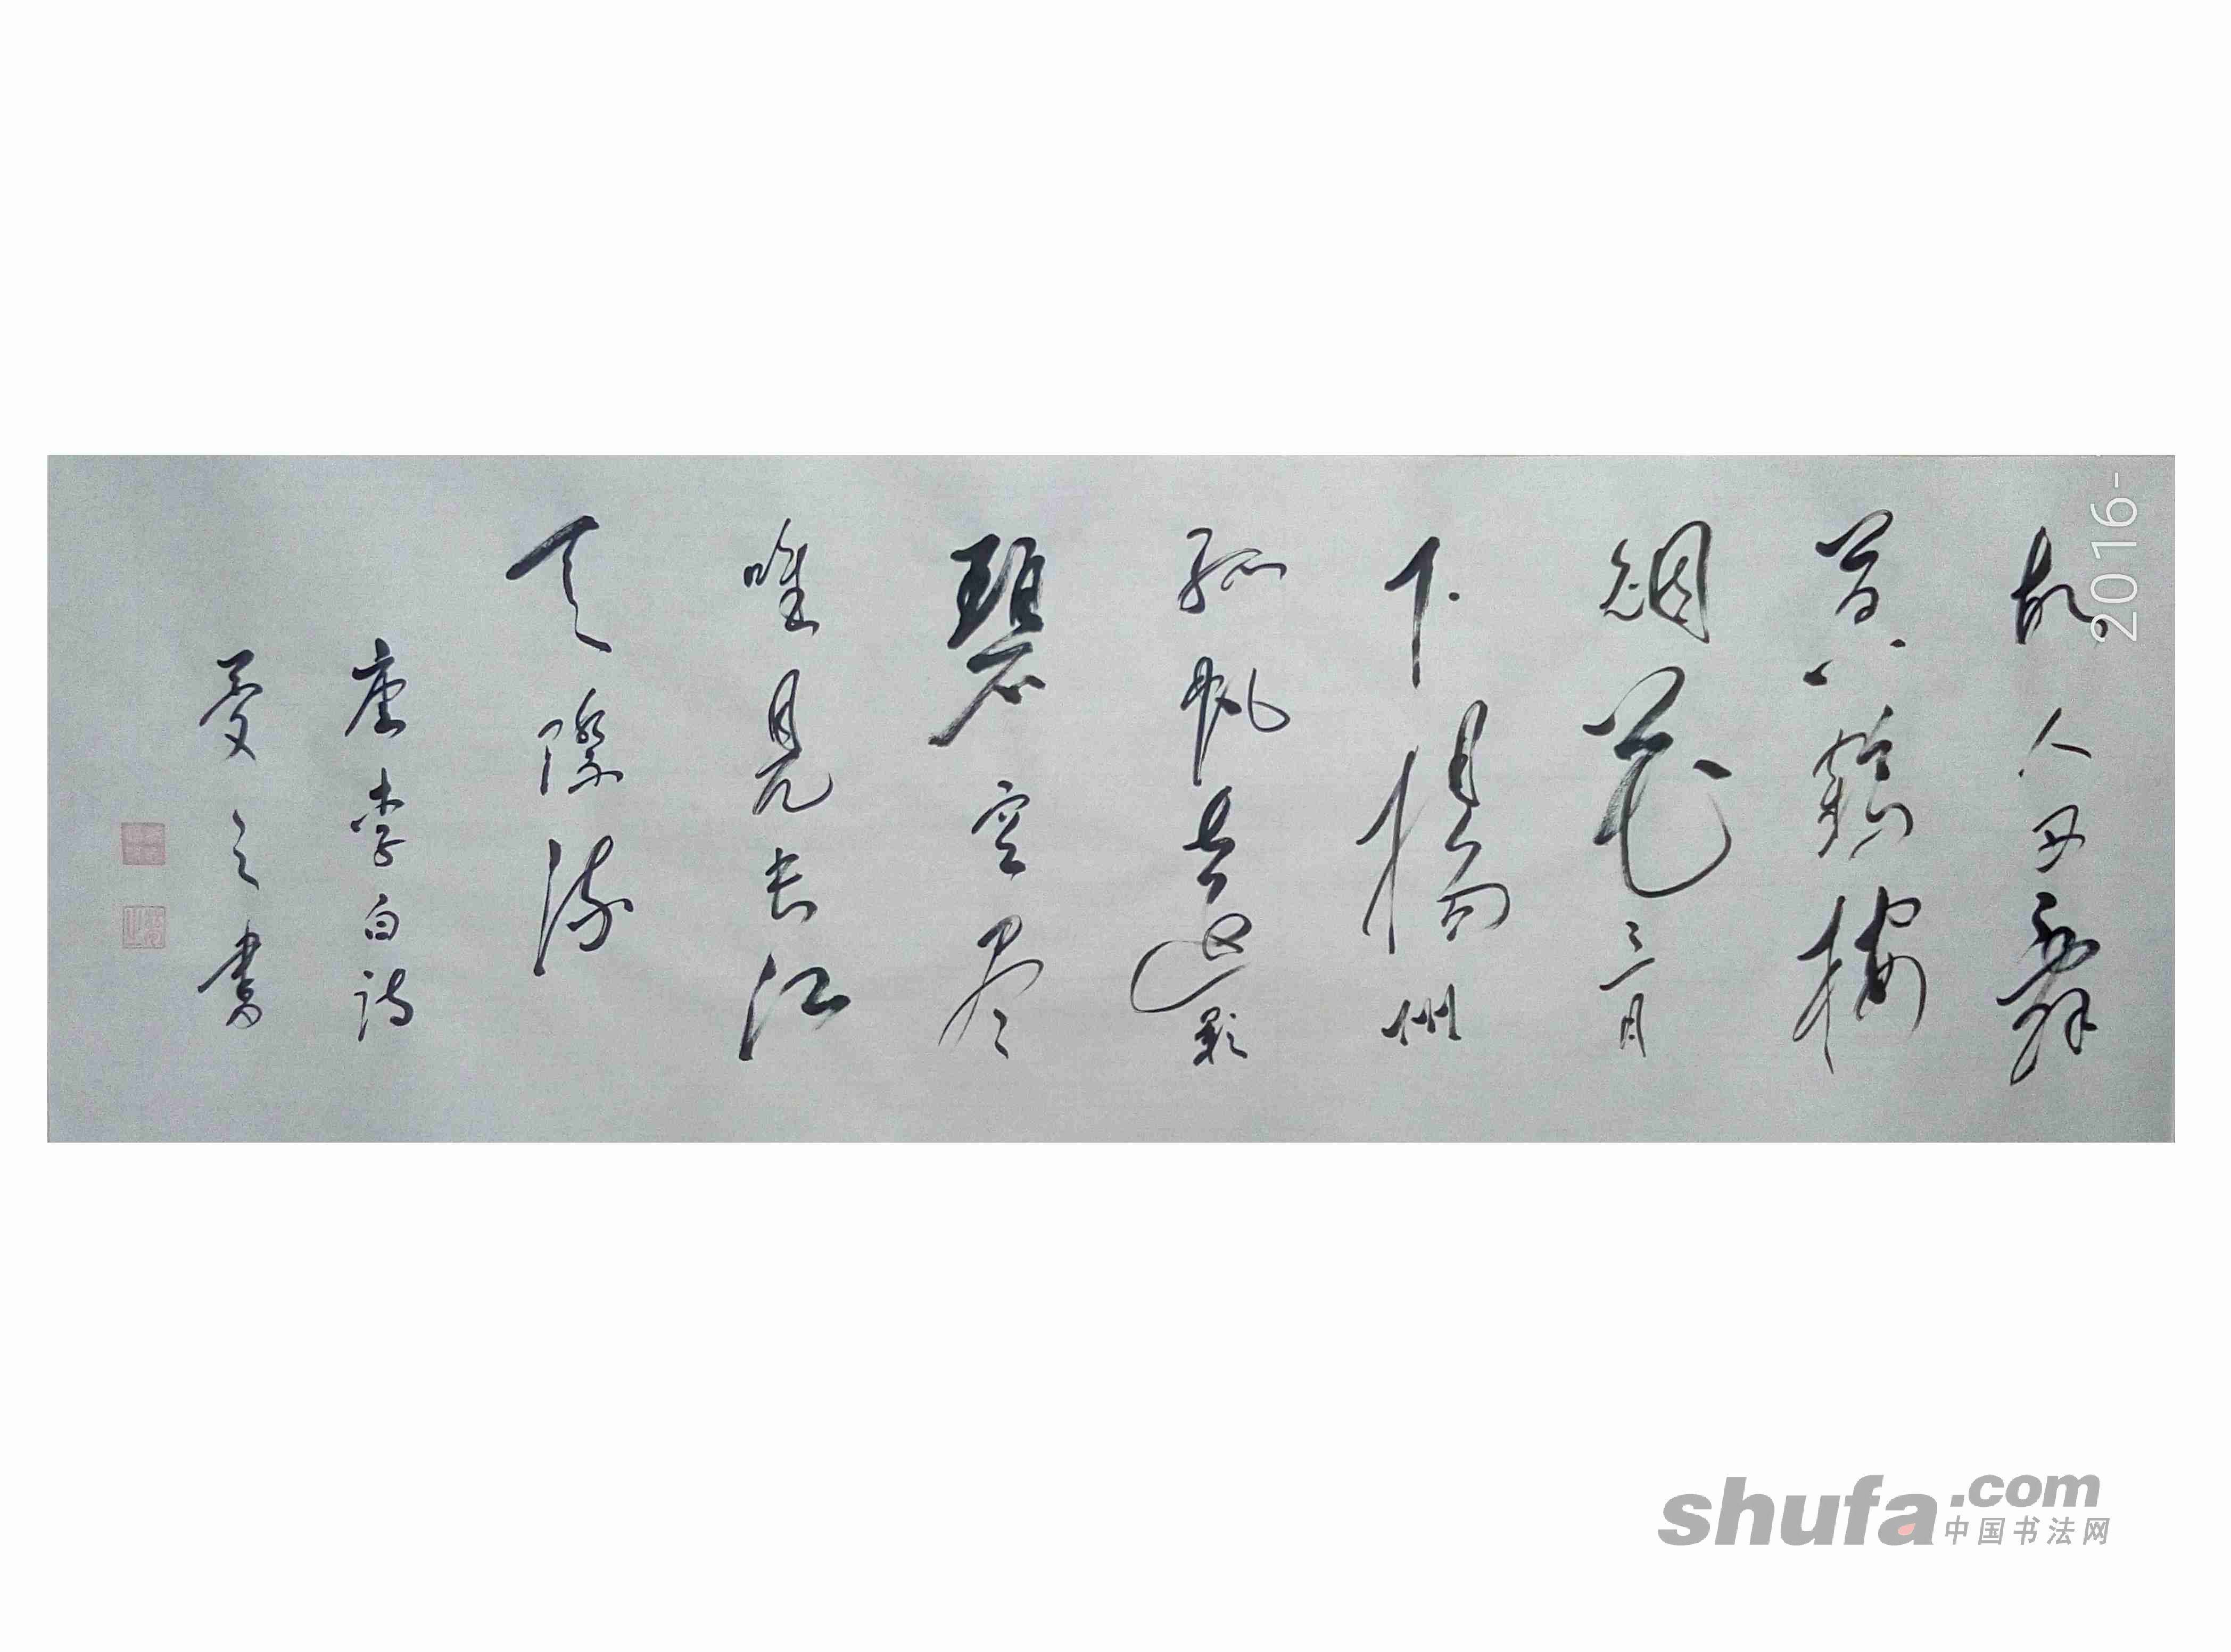 故人西辭
黄鶴樓
烟花三月
下揚州
孤帆遠影
碧空尽
唯見長江
天際流
唐李白詩
之書
2016-
shufa.com
中国书法网